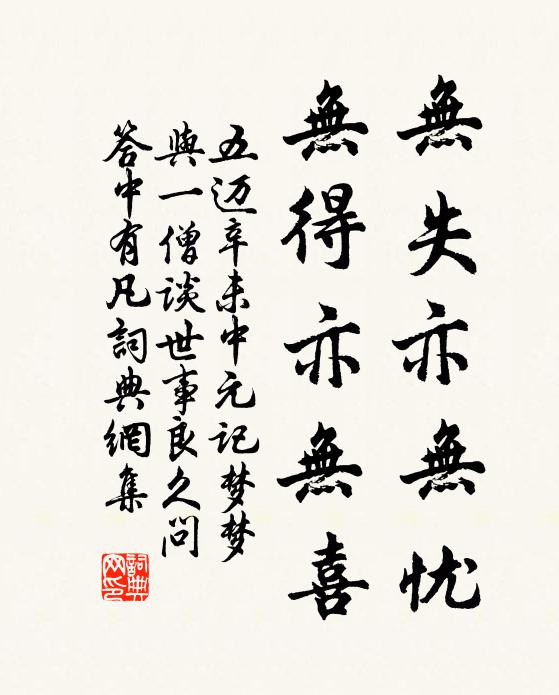 無失亦無忧
無得亦無喜
五迈辛未中元记梦梦
與一僧谈世事良久问
答中有凡詞典網集
詞典
网印